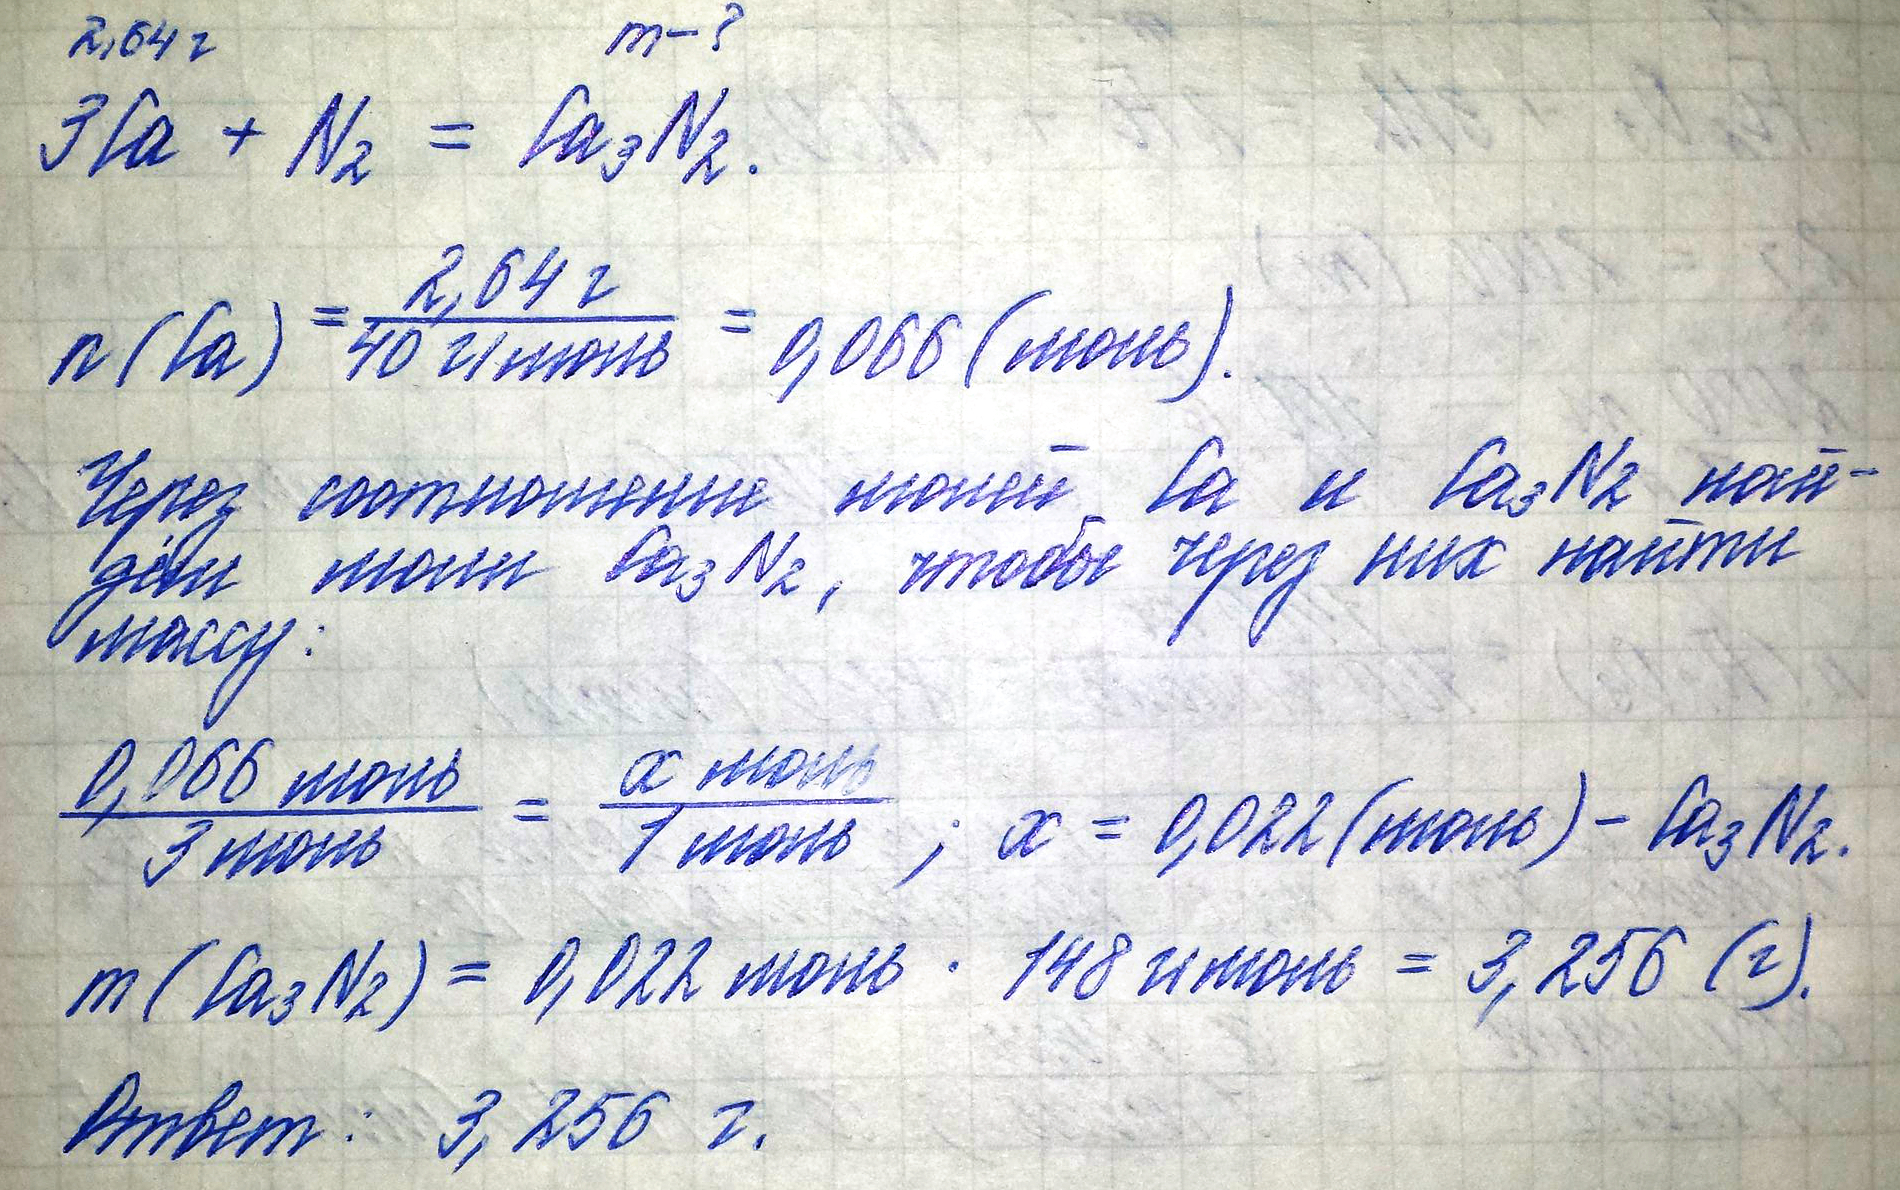 2,64 г m - ?
3Ca + N₂ = Ca₃N₂.
n(Ca) = 2,64 г / 40 г/моль = 0,066 (моль).
Через соотношение молей Ca и Ca₃N₂ най-
дём моли Ca₃N₂, чтобы через них найти
массу:
0,066 моль / 3 моль = x моль / 1 моль ; x = 0,022 (моль) - Ca₃N₂.
m(Ca₃N₂) = 0,022 моль · 148 г/моль = 3,256 (г).
Ответ: 3,256 г.